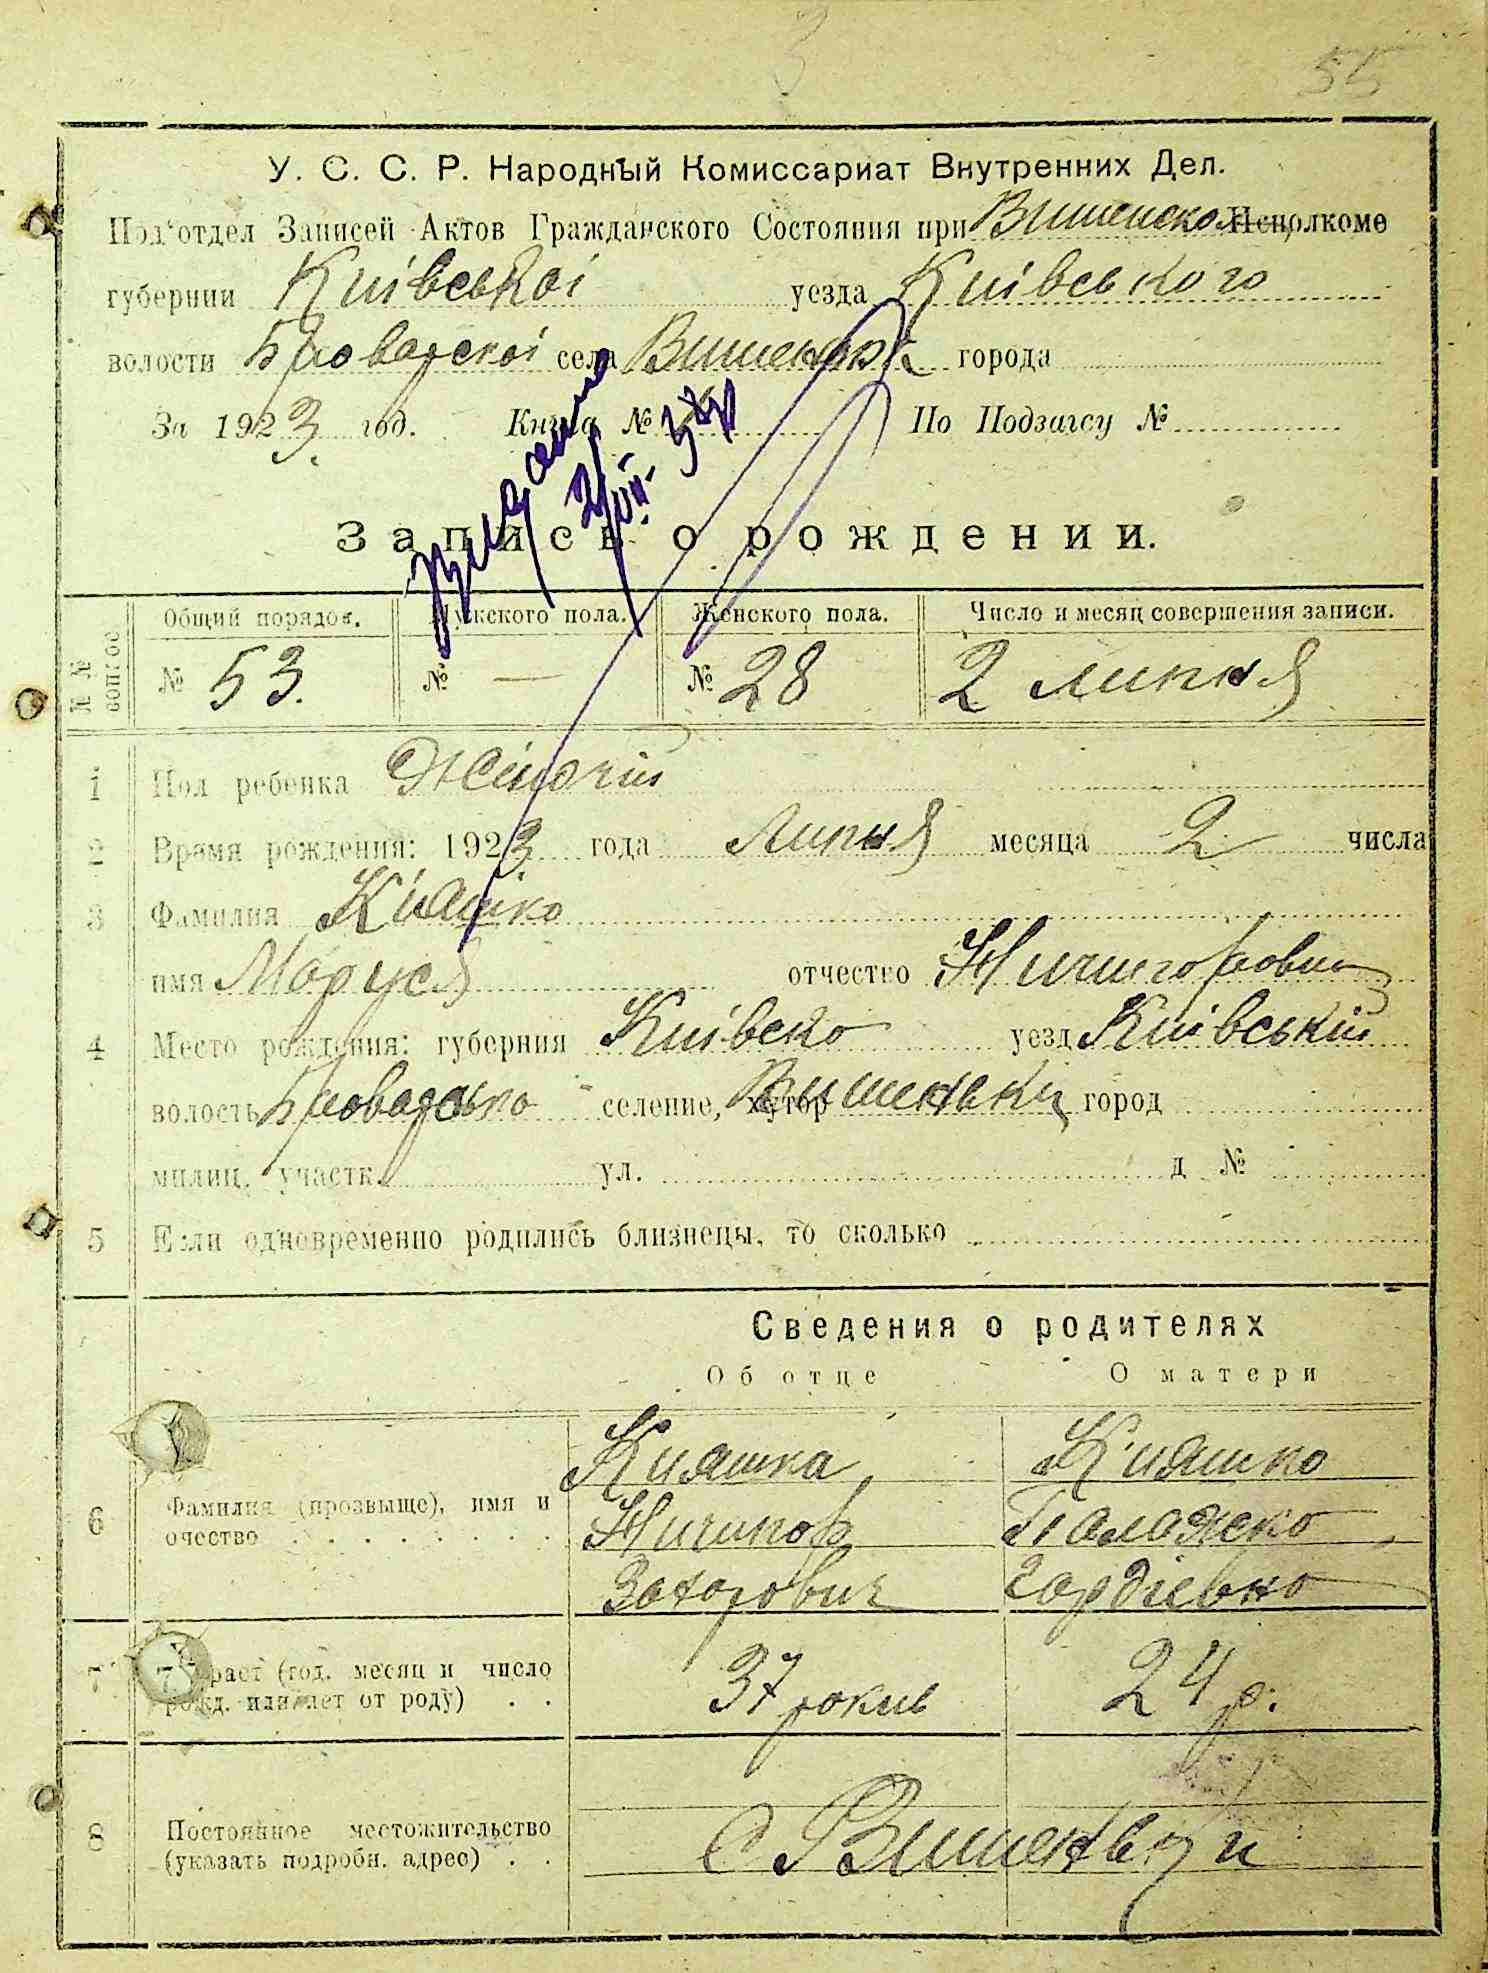 55
У. С. С. Р. Народный Комиссариат Внутренних Дел.
Подъотдел Записей Актов Гражданского Состояния при Вишенском Исполкоме
губернии Київської уезда Київського
волости Броварскоі села Вишеньок города
За 1923 год. Книга № По Подзагсу №
Видано
Запись о рождении.
Общий порядок. Мужского пола. Женского пола. Число и месяц совершения записи.
№ 53. № — № 28 2 липня
1 Пол ребенка Жіночій
2 Время рождения: 1923 года Липня месяца 2 числа
3 Фамилия Кияшко
имя Маруся отчество Ничипоровна
4 Место рождения: губерния Київска уезд Київській
волость Броварська селение, хутор Вишеньки город
милиц. участк. ул. д №
5 Если одновременно родились близнецы, то сколько
Сведения о родителях
Об отце О матери
Кияшка Кияшко
6 Фамилия (прозвыще), имя и очество Ничипор Палажка
Захарович Гордієвна
7 Возраст (год. месяц и число рожд. или лет от роду) 37 років 24 р.
8 Постоянное местожительство (указать подробн. адрес) С Вишеньки